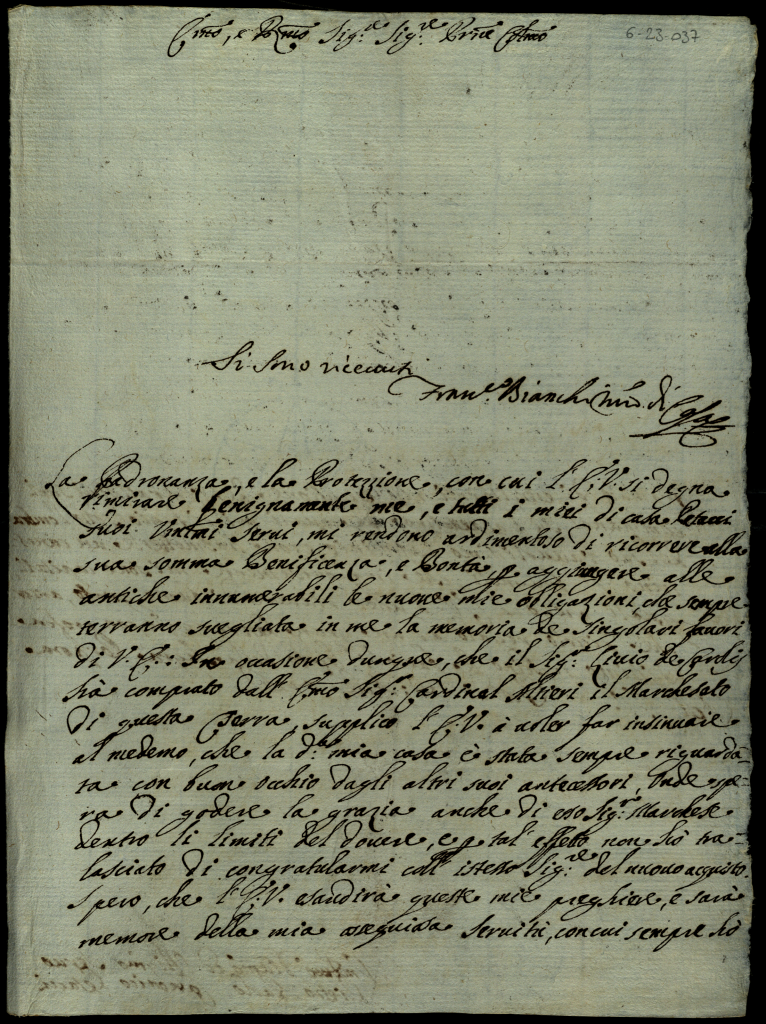 Emo, e Rmo Sig.re Sig.re Prne Colmo
6-23-037
Si sono ricevuti
Franc.o Bianchi
La Padronanza, e la Protezzione, con cui l'E.V. si degna
rimirare benignamente me, e tutti i miei di casa
suoi Umilmi servi, mi rendono ardimentoso di ricorrere alla
sua somma Beneficenza, e Bontà, p aggiungere alle
antiche innumerabili le nuove mie obligazioni, che sempre
terranno svegliata in me la memoria de singolari favori
di V.E.: In occasione dunque, che il Sig.r Livio de Carolis
hà comprato dall'Emo Sig.r Cardinal Altieri il Marchesato
di questa Terra, supplico l'E.V. à voler far insinuare
al medemo, che la d.a mia casa è stata sempre riguarda-
ta con buon occhio dagli altri suoi antecessori, onde spe-
ra di godere la grazia anche di esso Sig.r Marchese
dentro li limiti del dovere, e p tal'effetto non hò tra-
lasciato di congratularmi coll'istesso Sig.re del nuovo acquisto.
Spero, che l'E.V. esaudirà queste mie preghiere, e sarà
memore della mia ossequiosa servitù, con cui sempre hò